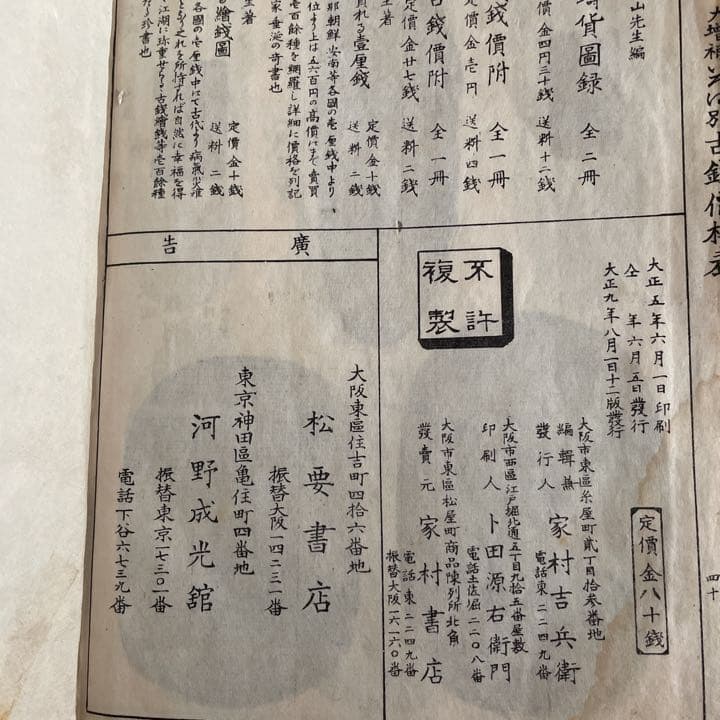 大増補
山先生編
貨圖録 全二冊
定價金四円三十銭 送料十二銭
銭價附 全一冊
價金壱円 送料四銭
古銭價附 全一冊
定價金廿七銭 送料二銭
生著
れる壹厘銭
定價金十銭
送料二銭
那朝鮮安南等各國の壱厘銭中より
位より上は五六百円の高價にまで賣買
壱百餘種を網羅し詳細に價格を列記
家垂涎の奇書也
生著
繪銭圖
定價金十銭
送料二銭
各國の壱厘銭中にて古代より病氣災難
となりこれを所持すれば自然に幸福を得
江湖に珍重せらる古銭繪銭等壱百餘種
珍書也
四十
不許
複製
大正五年六月一日印刷
仝 年六月五日發行
大正九年八月一日十二版發行
定價金八十銭
大阪市東區糸屋町貳丁目拾参番地
編輯兼
發行人 家村吉兵衛
電話東二二四九番
大阪市西區江戸堀北通五丁目九拾五番屋敷
印刷人 卜田源右衛門
電話土佐堀二二〇八番
大阪市東區松屋町商品陳列所北角
發賣元 家村書店
電話東二二四九番
振替大阪一六一六〇番
廣告
大阪東區住吉町四拾六番地
松要書店
振替大阪一四二三一番
東京神田區亀住町四番地
河野成光舘
振替東京一七三〇一番
電話下谷六七三九番